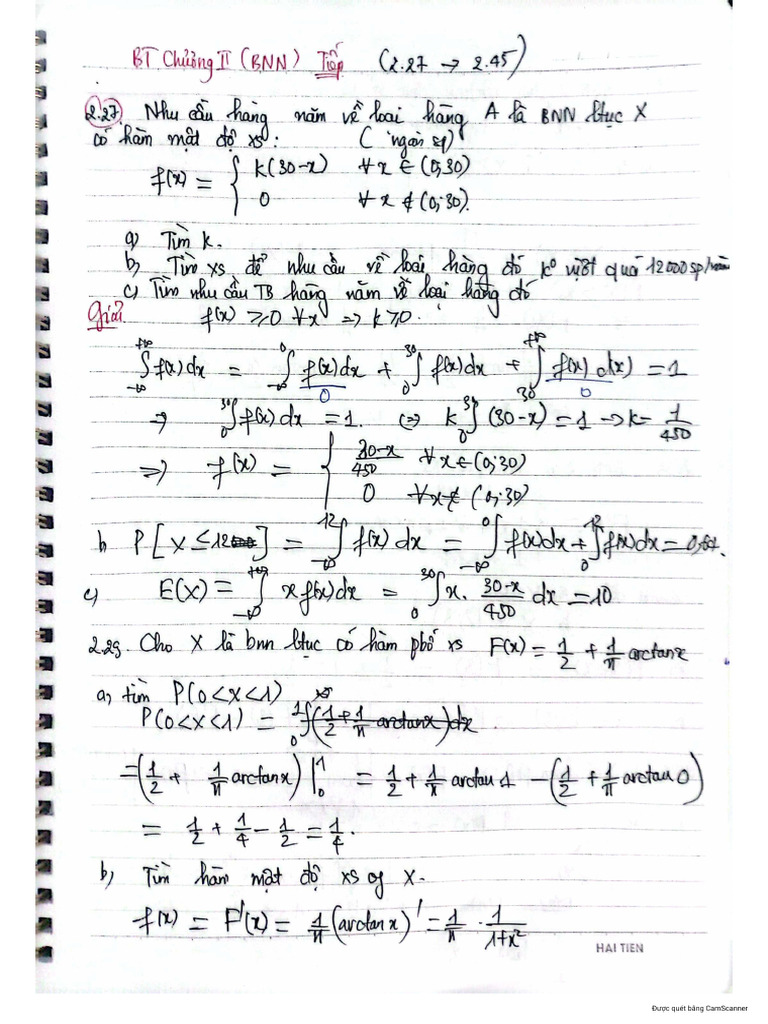 BT Chương II (BNN) Tiếp (2.27 → 2.45)
2.27. Nhu cầu hàng năm về loại hàng A là BNN ltục X
có hàm mật độ xs: (ngàn sp)
f(x) = { k(30-x) ∀x ∈ (0;30)
0 ∀x ∉ (0;30).
a) Tìm k.
b, Tìm xs để nhu cầu về loại hàng đó k° vượt quá 12000sp/năm
c) Tìm nhu cầu TB hàng năm về loại hàng đó
Giải. f(x) ≥0 ∀x ⇒ k≥0.
∫_{-∞}^{+∞} f(x)dx = ∫_{-∞}^{0} f(x)dx + ∫_{0}^{30} f(x)dx + ∫_{30}^{+∞} f(x) d(x) = 1
0 0
⇒ ∫_{0}^{30} f(x) dx = 1. ⇔ k ∫_{0}^{30} (30-x) = 1 → k = 1/450
⇒ f(x) = { 30-x/450 ∀x ∈ (0;30)
0 ∀x ∉ (0;30)
b P[X ≤ 12] = ∫_{-∞}^{12} f(x) dx = ∫_{-∞}^{0} f(x)dx + ∫_{0}^{12} f(x)dx = 0,64.
c, E(X) = ∫_{-∞}^{+∞} x f(x)dx = ∫_{0}^{30} x. 30-x/450 dx = 10
2.29. Cho X là bnn ltục có hàm pbố xs F(x) = 1/2 + 1/π arctanx
a, tìm P(0<X<1)
P(0<X<1) = ∫_{0}^{1} (1/2 + 1/π arctanx)dx
= (1/2 + 1/π arctanx) |_{0}^{1} = 1/2 + 1/π arctan 1 - (1/2 + 1/π arctan 0)
= 1/2 + 1/4 - 1/2 = 1/4.
b, Tìm hàm mật độ xs of X.
f(x) = F'(x) = 1/π (arctan x)' = 1/π . 1/1+x²
HAI TIEN
Được quét bằng CamScanner